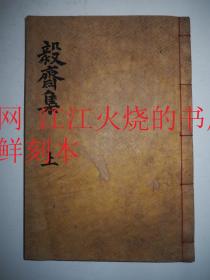 毅齋集
上
网 江江火烧的书
鲜刻本